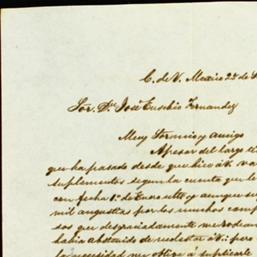 C. de V. Mexico 22 de
Sor. Dn. José Eusebio Fernandez
Muy Sor mio y amigo
Apesar del largo
que ha pasado desde que hice á V. va
suplementos segun la cuenta que le
con fecha 1º de Enero y aunque
mil angustias por los muchos comp
sos que desgraciadamente me rodean
habia abstenido de molestar á V. pero
la necesidad me obliga á suplicarle